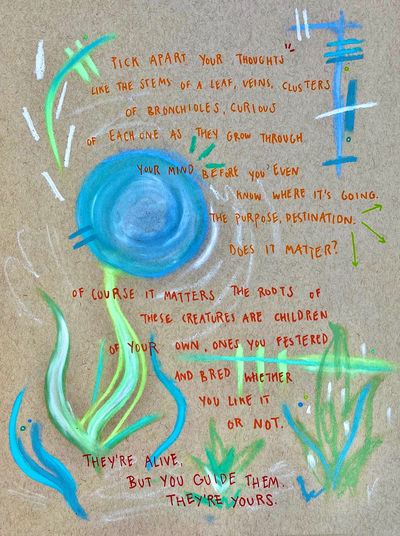 PICK APART YOUR THOUGHTS
LIKE THE STEMS OF A LEAF, VEINS, CLUSTERS
OF BRONCHIOLES, CURIOUS
OF EACH ONE AS THEY GROW THROUGH
YOUR MIND BEFORE YOU EVEN
KNOW WHERE IT'S GOING.
THE PURPOSE, DESTINATION.
DOES IT MATTER?
OF COURSE IT MATTERS. THE ROOTS OF
THESE CREATURES ARE CHILDREN
OF YOUR OWN, ONES YOU FESTERED
AND BRED WHETHER
YOU LIKE IT
OR NOT.
THEY'RE ALIVE,
BUT YOU GUIDE THEM.
THEY'RE YOURS.